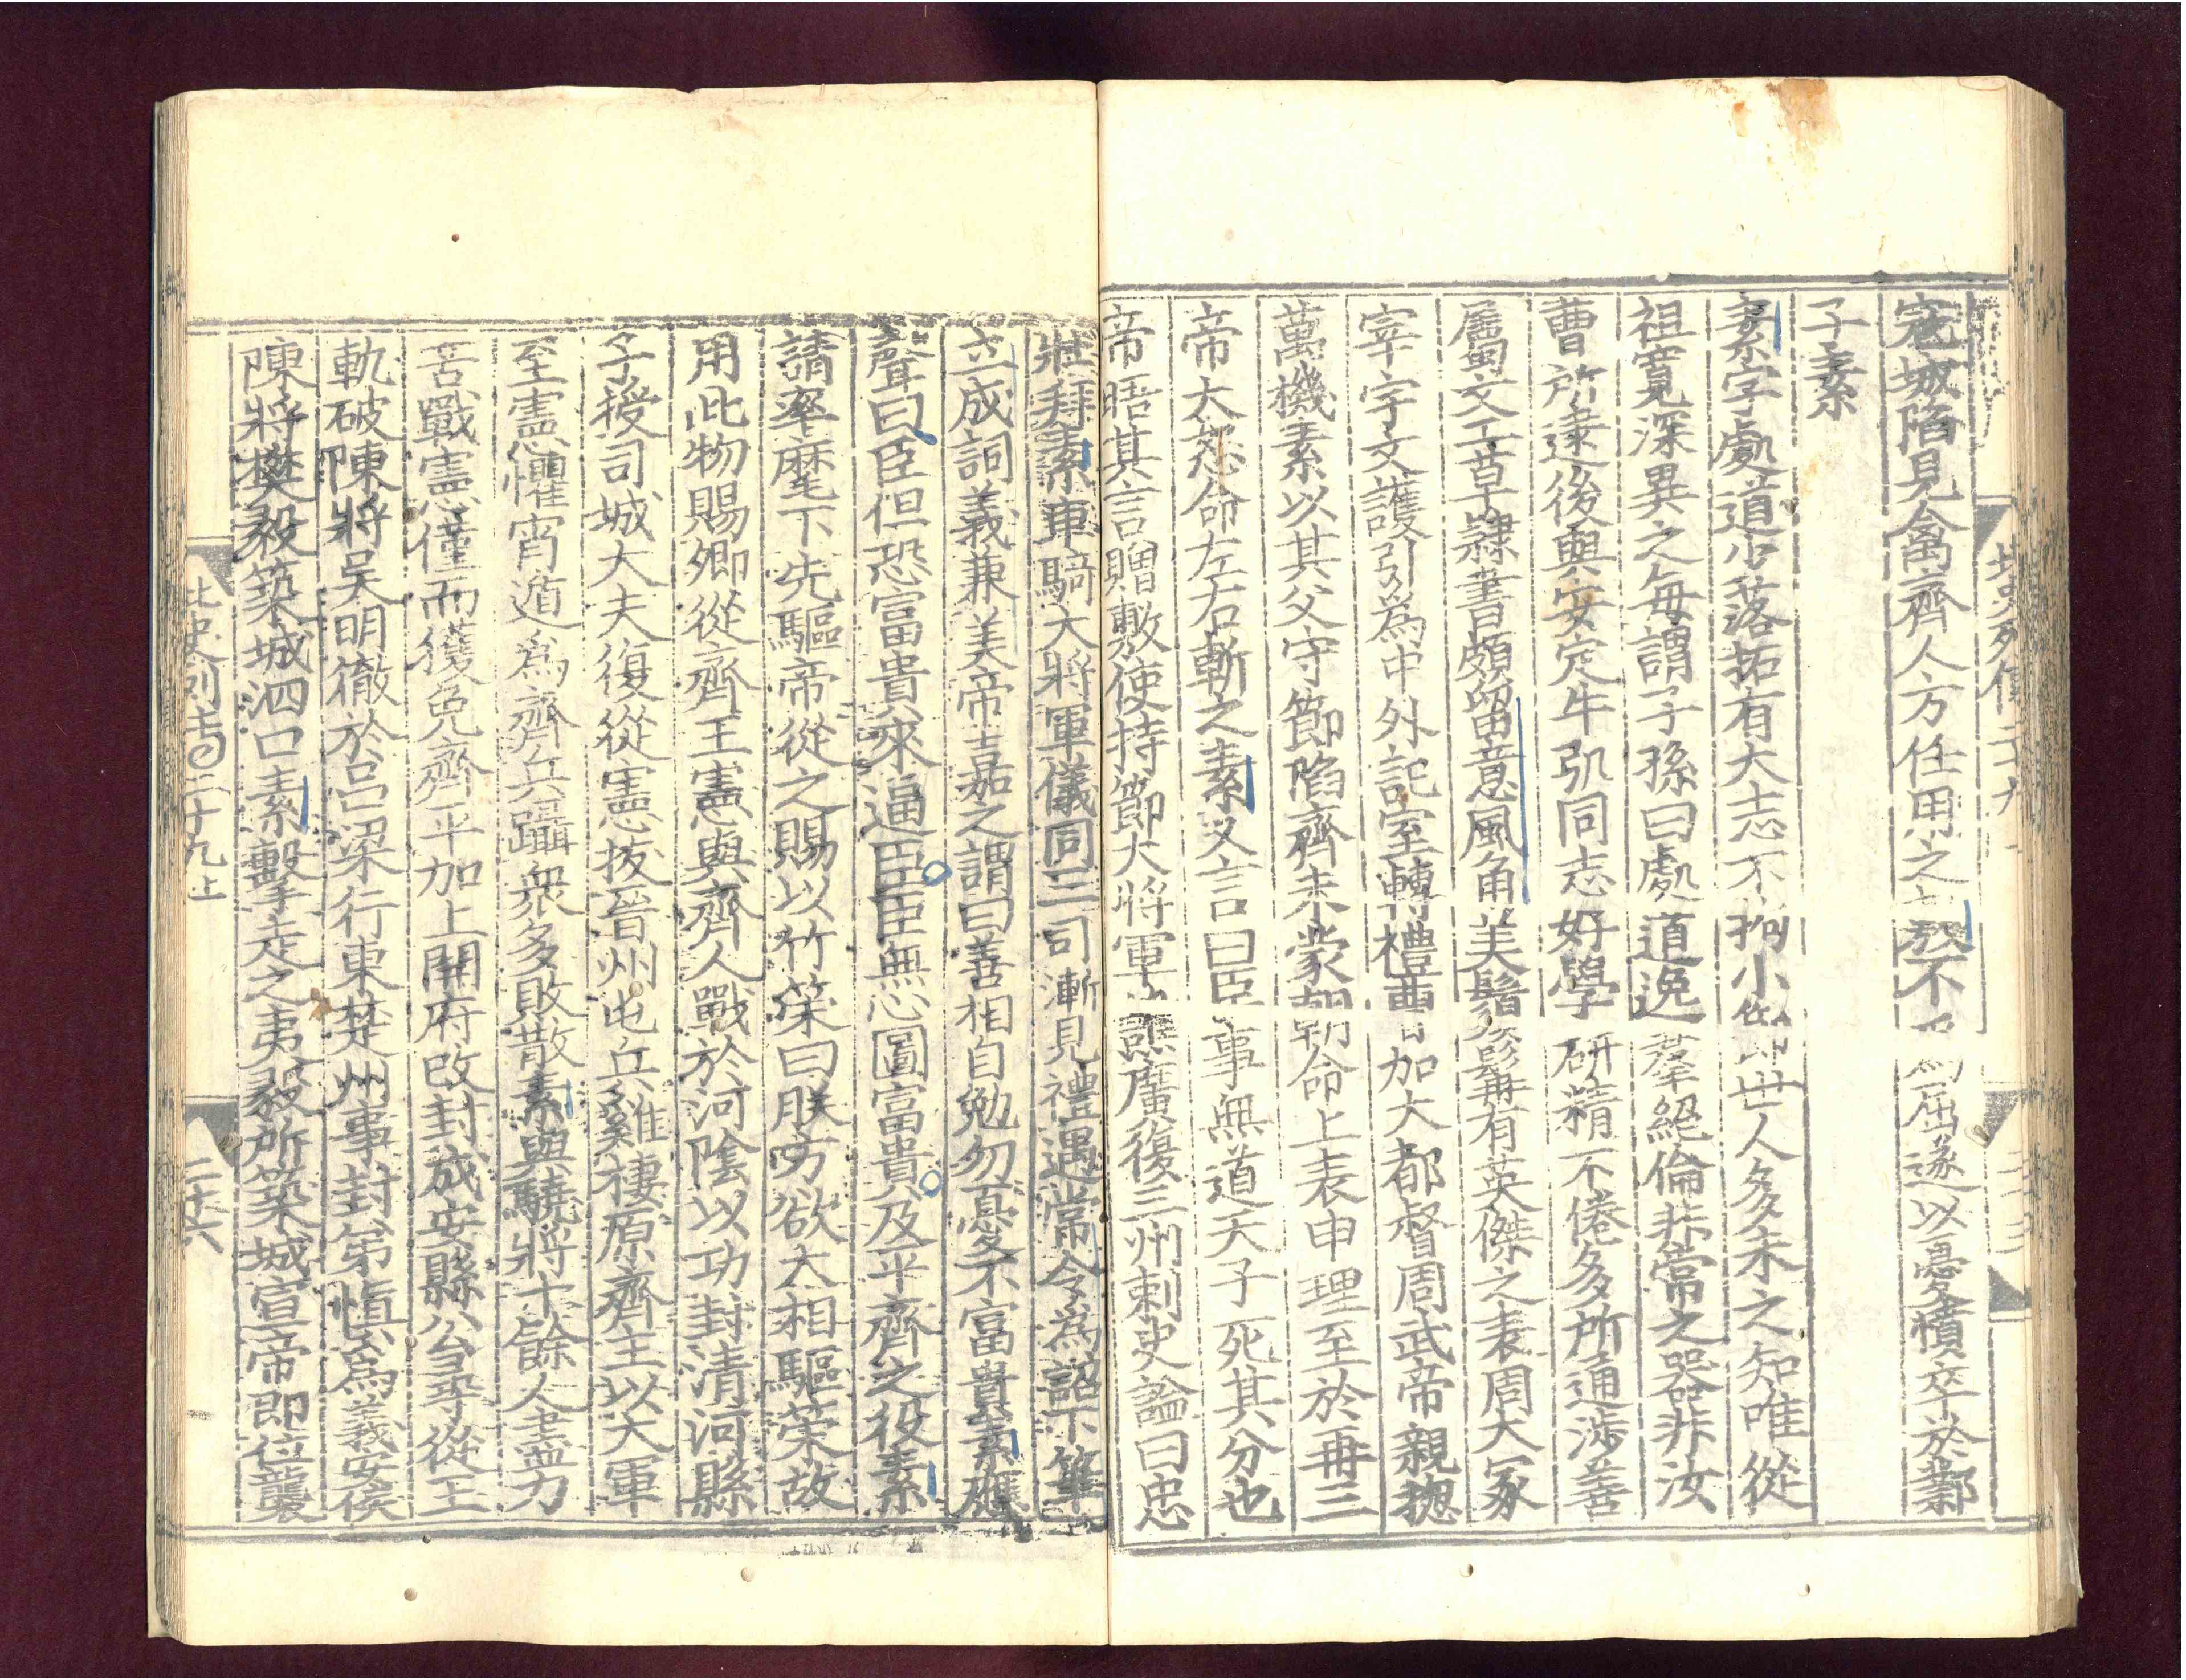 北史列傳二十九
寇城陷見禽齊人方任用之敷不爲屈遂以憂積卒於鄴
子素
素字處道少落拓有大志不拘小節世人多未之知唯從
祖寬深異之每謂子孫曰處道逸羣絕倫非常之器非汝
曹所逮後與安定牛弘同志好學研精不倦多所通涉善
屬文工草隸書頗留意風角美鬚髯有英傑之表周大冢
宰宇文護引為中外記室轉禮曹加大都督周武帝親揔
萬機素以其父守節陷齊未蒙朝命上表申理至於再三
帝大怒命左右斬之素又言曰臣事無道天子死其分也
帝寤其言贈敷使持節大將軍譙廣復三州刺史諡曰忠
壯拜素車騎大將軍儀同三司漸見禮遇常令為詔下筆
立成詞義兼美帝嘉之謂曰善相自勉勿憂不富貴素應
聲曰臣但恐富貴來逼臣臣無心圖富貴及平齊之役素
請率麾下先驅帝從之賜以竹策曰朕方欲大相驅策故
用此物賜卿從齊王憲與齊人戰於河陰以功封清河縣
子授司城大夫復從憲拔晉州屯兵雞棲原齊主以大軍
至憲懼宵遁爲齊兵躡衆多敗散素與驍將十餘人盡力
苦戰憲僅而獲免齊平加上開府改封成安縣公尋從王
軌破陳將吴明徹於呂梁行東楚州事封弟慎爲義安侯
陳將樊毅築城泗口素擊走之夷毅所築城宣帝即位襲
北史列 二十九上 二十六